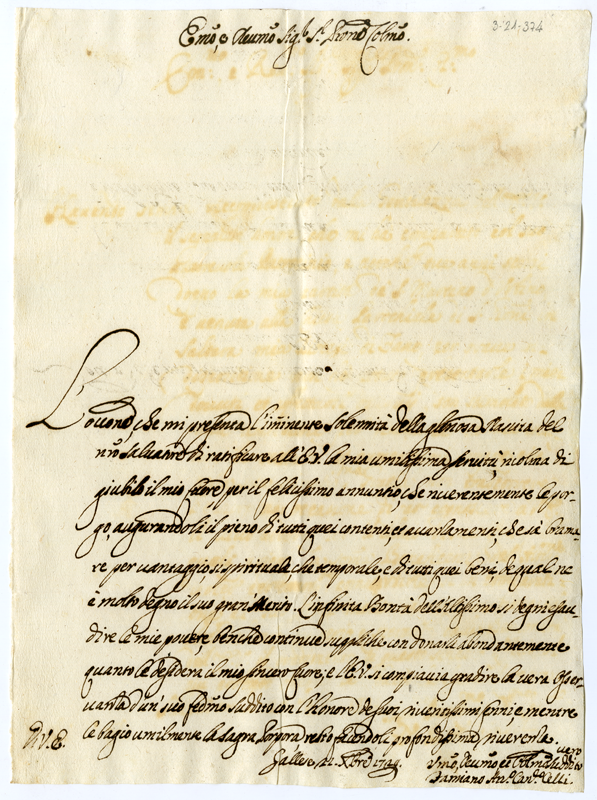 3-21-374
Emo, e Reumo Sig.r S.r Pròne Colmo.
L'occone che mi presenta l'iminente Solennità della gloriosa Nascita del
nro Saluatore di ratificare all'E.V. la mia umilissima seruitù, ricolma di
giubilo il mio cuore per il felicissimo annuntio, che riuerentemente le por-
go, augurandole il pieno di tutti quei contenti, et auanzamenti, che sà brama-
re per vantaggio, si spirituale, che temporale, e di tutti quei beni, de quali ne
è molto degno il suo gran Merito. L'infinita Bontà dell'Altissimo si degni esau-
dire le mie pouere, benche continue suppliche con donarle abondantemente
quanto le desidera il mio sincero cuore, e l'E.V. si compiaccia gradire la vera Osser-
vanza d'un suo fedmo suddito con l'honore de suoi riueritissimi cenni, e mentre
le bagio umilmente la Sagra Porpora resto facendole profondissima riuerenza.
D.V.E.
Gallese, 21. Xbre 1729.
vero
Umo, Deumo et Obbmo suddito
Damiano An.o Can.co